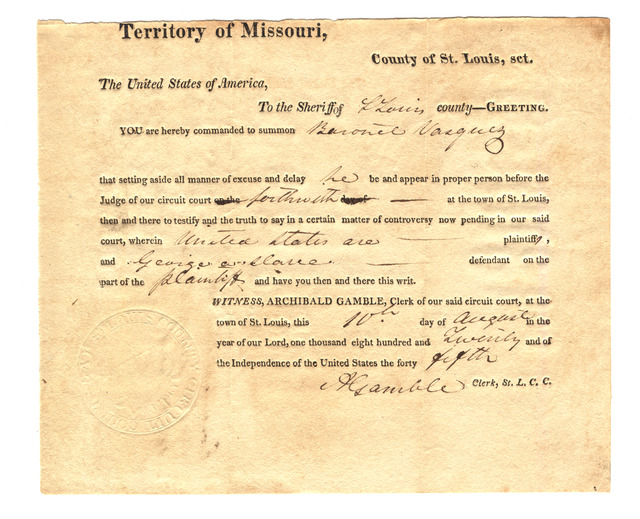 Territory of Missouri,
County of St. Louis, sct.
The United States of America,
To the Sheriff of St Louis county—GREETING.
YOU are hereby commanded to summon Baronet Vasquez
that setting aside all manner of excuse and delay he be and appear in proper person before the
Judge of our circuit court on the forthwith day of — at the town of St. Louis,
then and there to testify and the truth to say in a certain matter of controversy now pending in our said
court, wherein United States are — plaintiffs,
and George a Slave — defendant on the
part of the plaintiff and have you then and there this writ.
WITNESS, ARCHIBALD GAMBLE, Clerk of our said circuit court, at the
town of St. Louis, this 10th day of August in the
year of our Lord, one thousand eight hundred and Twenty and of
the Independence of the United States the forty fifth
A Gamble Clerk, St. L. C. C.